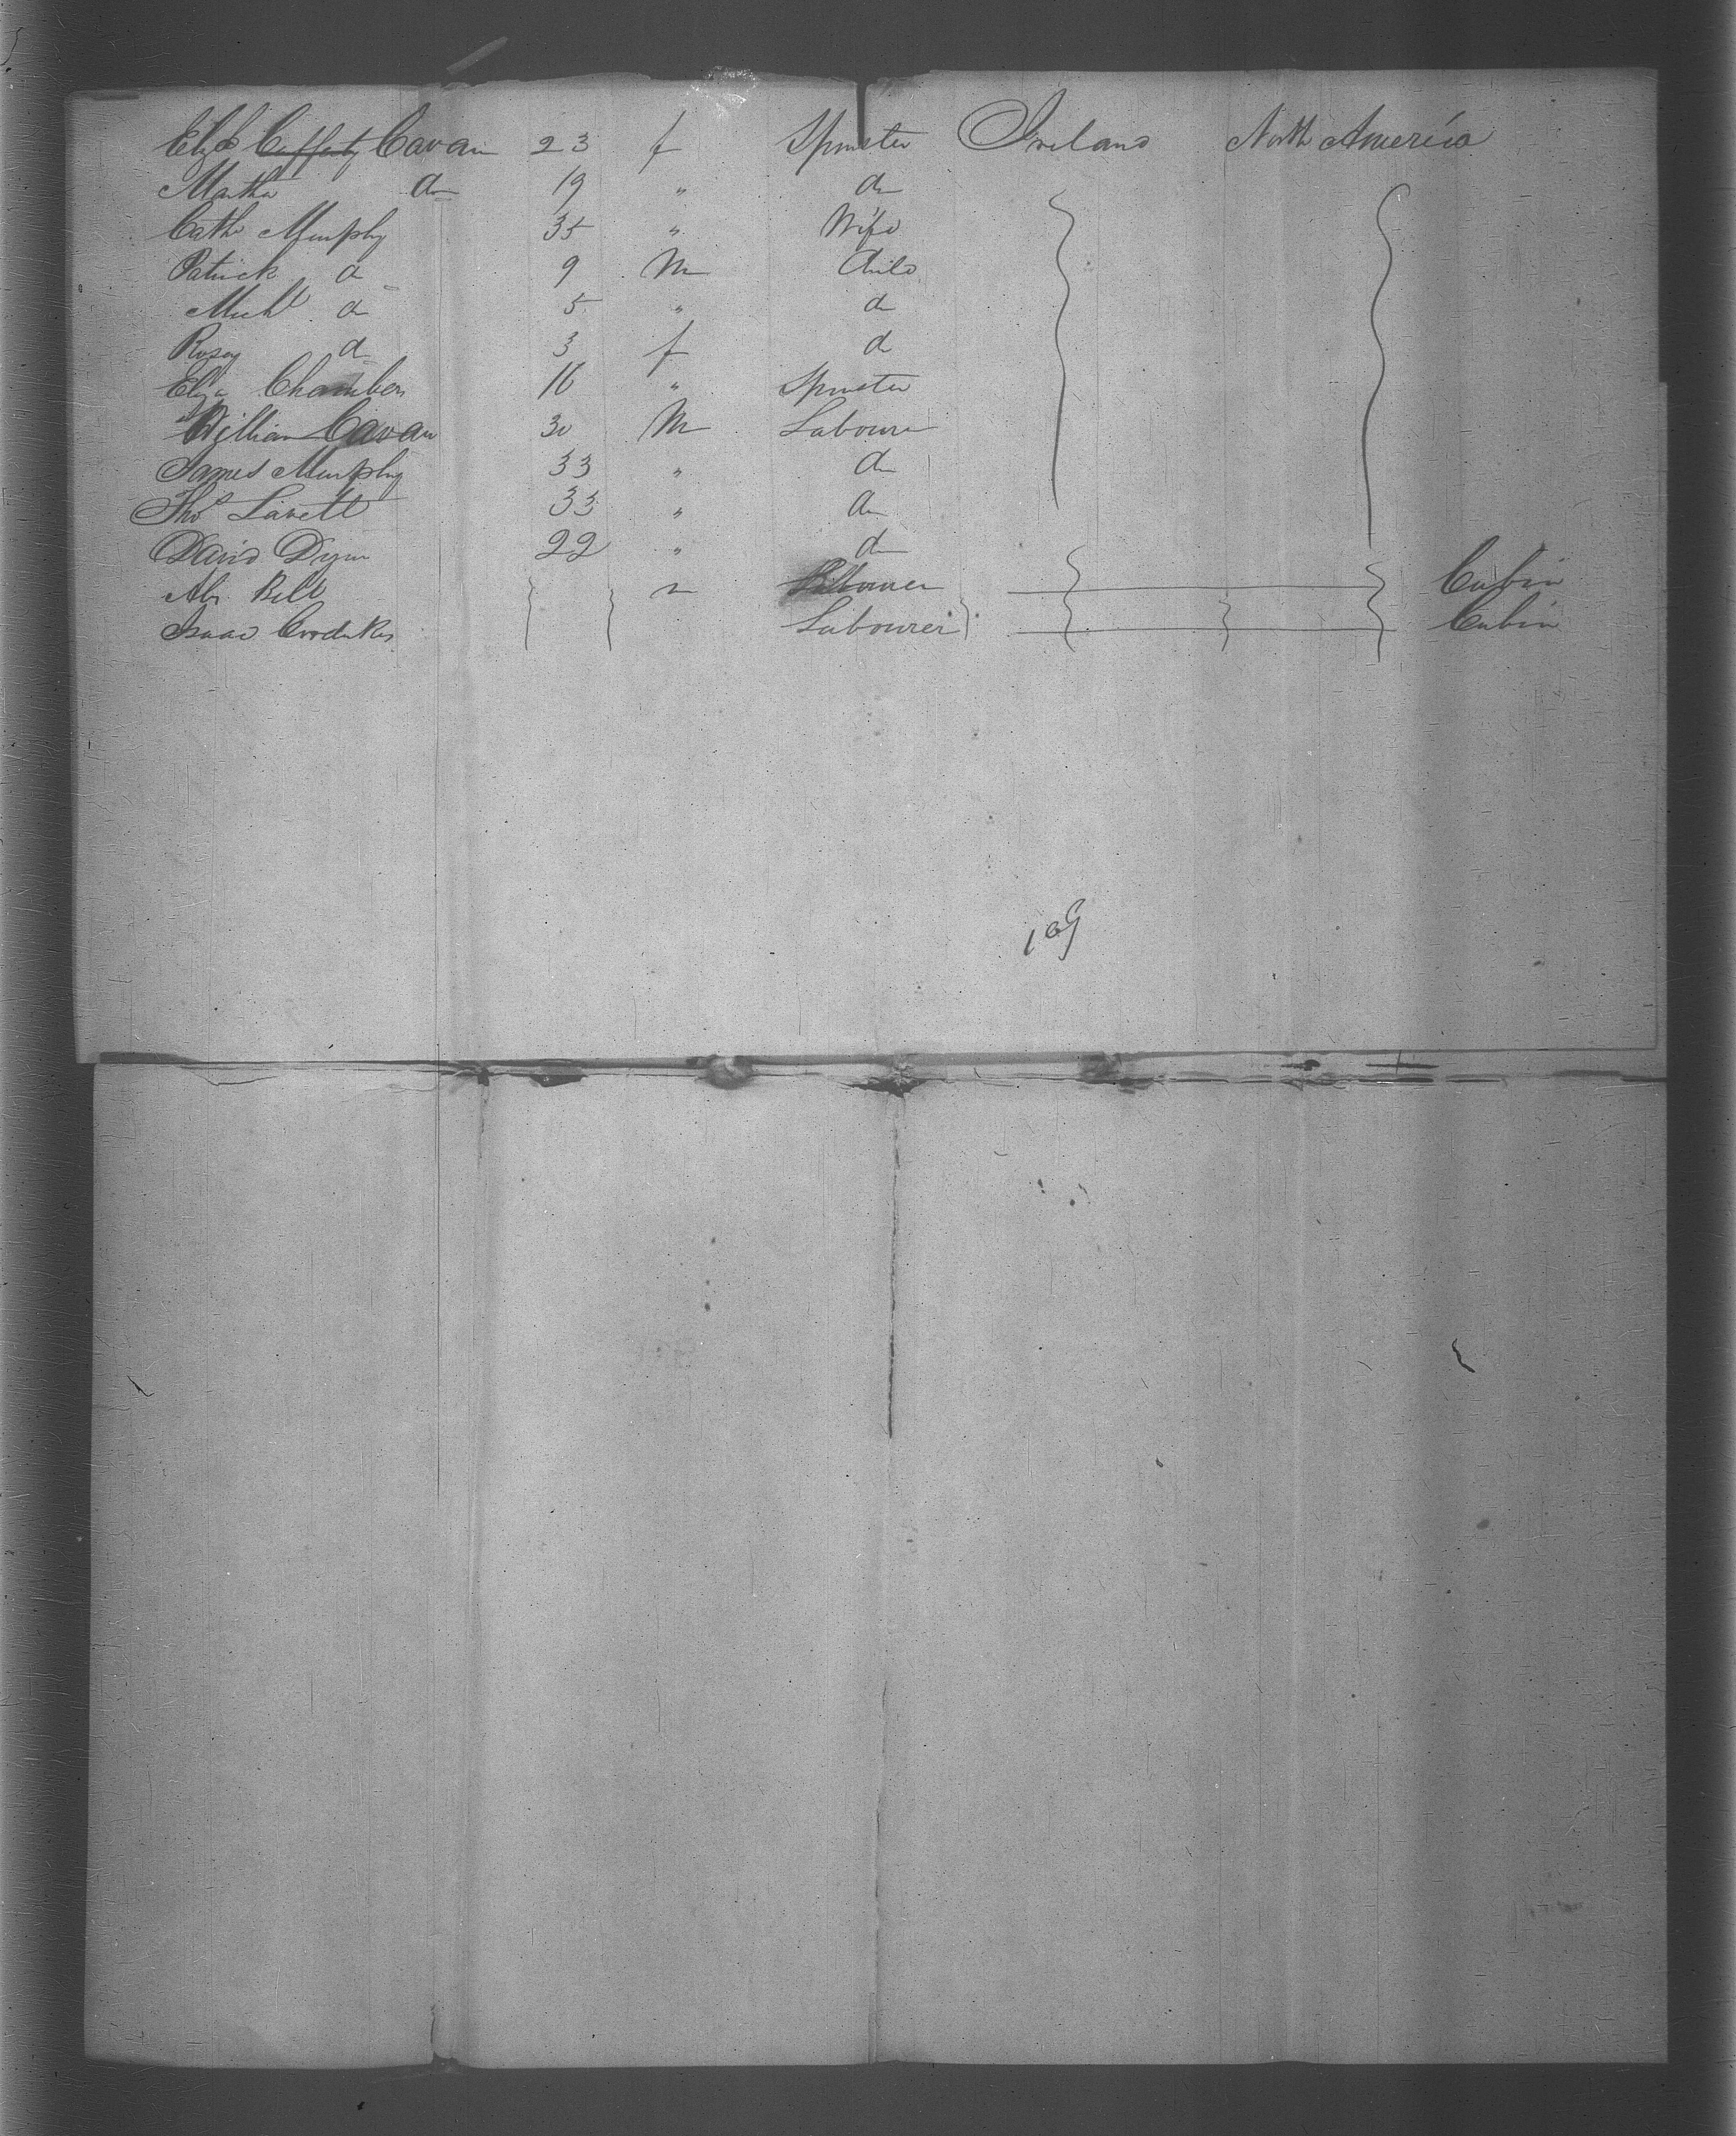 Eliza Cafferty Cavan 23 f Spinster Ireland North America
Martha do 19 " do
Cath Murphy 35 " Wife
Patrick do 9 M Child
Michl do 5 " do
Rosey do 3 f do
Eliza Chambers 16 " Spinster
William Cavan 30 M Labourer
James Murphy 33 " do
Thos Lavett 33 " do
David 22 " do
Bell Labourer Cabin
Isaac Labourer Cabin
109